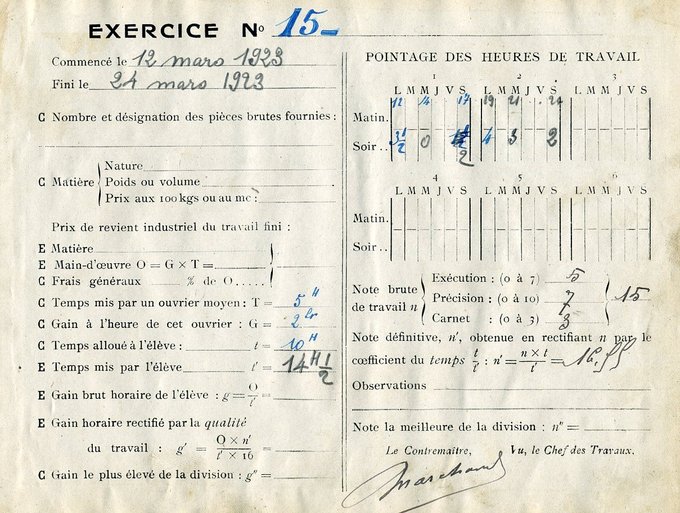 EXERCICE No 15
Commencé le 12 mars 1923
Fini le 24 mars 1923
C Nombre et désignation des pièces brutes fournies :
C Matière
Nature
Poids ou volume
Prix aux 100 kgs ou au mc :
Prix de revient industriel du travail fini :
E Matière
E Main-d'œuvre O = G × T =
C Frais généraux % de O
C Temps mis par un ouvrier moyen : T = 5 H
C Gain à l'heure de cet ouvrier : G =
C Temps alloué à l'élève : t = 10 H
E Temps mis par l'élève t' = 14 H 1/2
E Gain brut horaire de l'élève : g = O/t' =
E Gain horaire rectifié par la qualité
du travail : g' = O × n' / t' × 16 =
C Gain le plus élevé de la division : g" =
POINTAGE DES HEURES DE TRAVAIL
1 2 3
L M M J V S L M M J V S L M M J V S
12 14 17 19 21 24
Matin.
Soir .. 3 1/2 0 2 4 3 2
4 5 6
L M M J V S L M M J V S L M M J V S
Matin.
Soir ..
Note brute de travail n
Exécution : (0 à 7) 5
Précision : (0 à 10) 7
Carnet : (0 à 3) 3
15
Note définitive, n', obtenue en rectifiant n par le
coefficient du temps t/t' : n' = n × t / t' =
Observations
Note la meilleure de la division : n" =
Le Contremaître, Vu, le Chef des Travaux.
Marchand